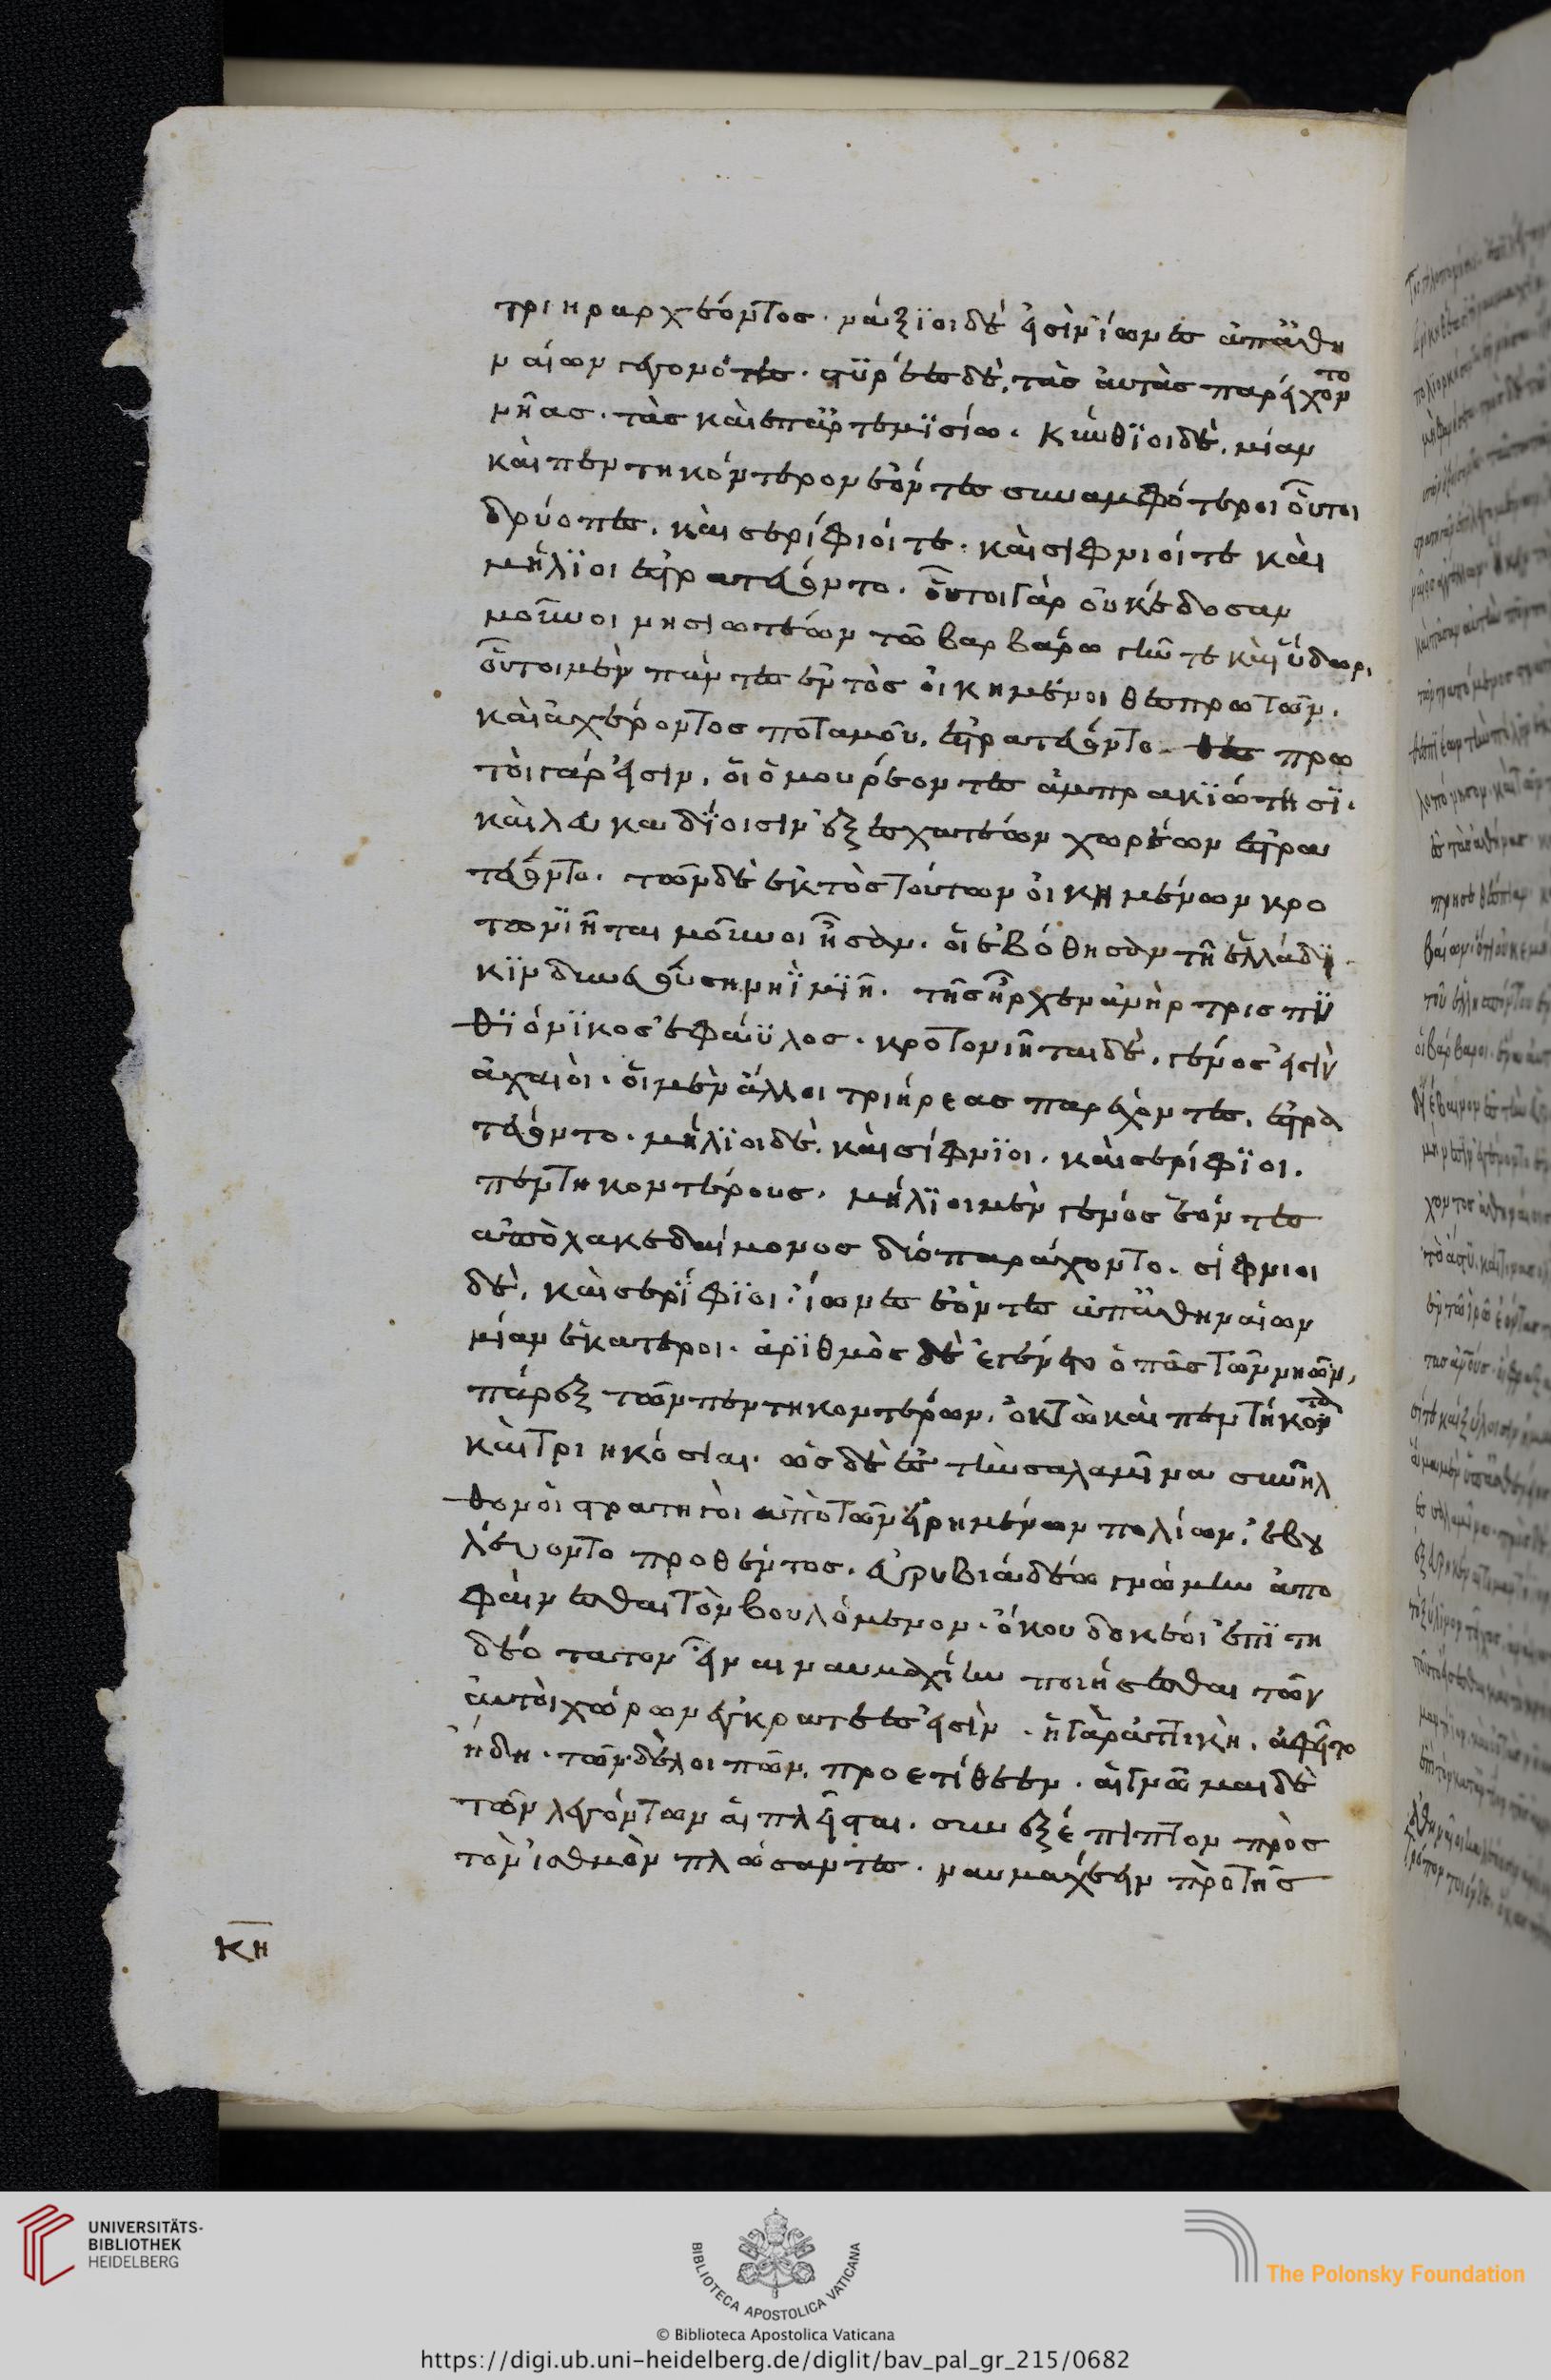 τριηραρχέοντος. νάξϊοι δέ εἰσιν ἴωνες ἀπ᾽ ἀθη
ναίων γεγονότες. στϋρέες δὲ, τὰς αὐτὰς παρείχοντο
νῆας. τὰς καὶ ἐπ᾽ ἀρτεμϊσίω. κύθϊοι δὲ, μίαν
καὶ πεντηκόντερον ἐόντες συναμφότεροι οὗτοι
δρύοπες. καὶ σερίφιοί τε. καὶ σίφνιοί τε καὶ
μήλϊοι ἐστρατεύοντο. οὗτοι γὰρ οὐκ ἔδοσαν
μοῦνοι νησιωτέων τῶ βαρβάρω γῆν τε καὶ ὕδωρ.
οὗτοι μὲν πάντες ἐντὸς οἰκημένοι θεσπρωτῶν.
καὶ ἀχέροντος ποταμοῦ. ἐστρατεύοντο. θεσπρω
τοὶ γάρ εἰσιν, οἱ ὁμουρέοντες ἀμπρακϊώτησϊ.
καὶ λευκαδίοισιν ἐξ ἐσχατέων χωρέων ἐστρα
τεύοντο. τῶν δὲ ἐκτὸς τούτων οἰκημένων κρο
τωνϊῆται μοῦνοι ἦσαν. οἳ ἐβόθησαν τῆ ἑλλάδϊ
κϊνδυνευούση νηῒ μϊῆ. τῆς ἦρχεν ἀνὴρ τρισπϋ
θϊόνϊκος φάϋλος. κροτονιῆται δὲ, γένος εἰσὶν
ἀχαιοί. οἱ μὲν ἄλλοι τριήρεας παρεχόντες, ἐστρα
τεύοντο. μήλϊοι δὲ. καὶ σίφνϊοι. καὶ σερίφϊοι.
πεντηκοντέρους. μήλϊοι μὲν γένος ἐόντες
ἀπὸ λακεδαίμονος δύο παρείχοντο. σίφνιοι
δὲ, καὶ σερίφϊοι. ἴωνες ἐόντες ἀπ᾽ ἀθηναίων
μίαν ἑκάτεροι. ἀρϊθμὸς δὲ ἐγένετο ὁ πᾶς τῶν νηῶν,
πάρεξ τῶν πεντηκοντέρων. ὀκτὼ καὶ πεντήκοντα
καὶ τριηκόσιαι. ὡς δὲ ἐς τὴν σαλαμῖνα συνῆλ
θον οἱ στρατηγοὶ ἀπὸ τῶν εἰρημένων πολίων. ἐβου
λεύοντο προθέντος. εὐρυβιάδεω γνώμην ἀπο
φαίνεσθαι τὸν βουλόμενον. ὅκου δοκέοι ἐπϊτη
δεότατον εἶναι ναυμαχίην ποιήσεσθαι τῶν
αὐτοὶ χώρων ἐγκρατέες εἰσὶν. ἡ γὰρ ἀττικὴ. ἀφεῖτο
ἤδη. τῶν δὲ λοιπῶν. προετίθεεν. αἱ γνῶμαι δὲ
τῶν λεγόντων αἱ πλεῖσται. συνεξέπιπτον πρὸς
τὸν ἰσθμὸν πλώσαντες. ναυμαχέειν πρὸ τῆς
κη
UNIVERSITÄTS-
BIBLIOTHEK
HEIDELBERG
BIBLIOTECA APOSTOLICA VATICANA
The Polonsky Foundation
© Biblioteca Apostolica Vaticana
https://digi.ub.uni-heidelberg.de/diglit/bav_pal_gr_215/0682